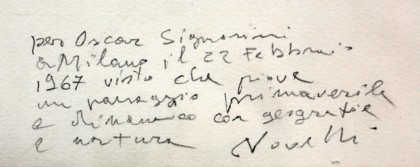 per Oscar Signorini
a Milano il 22 Febbraio
1967 visto che piove
un paesaggio primaverile
e dinamico con geografie
e natura Novelli